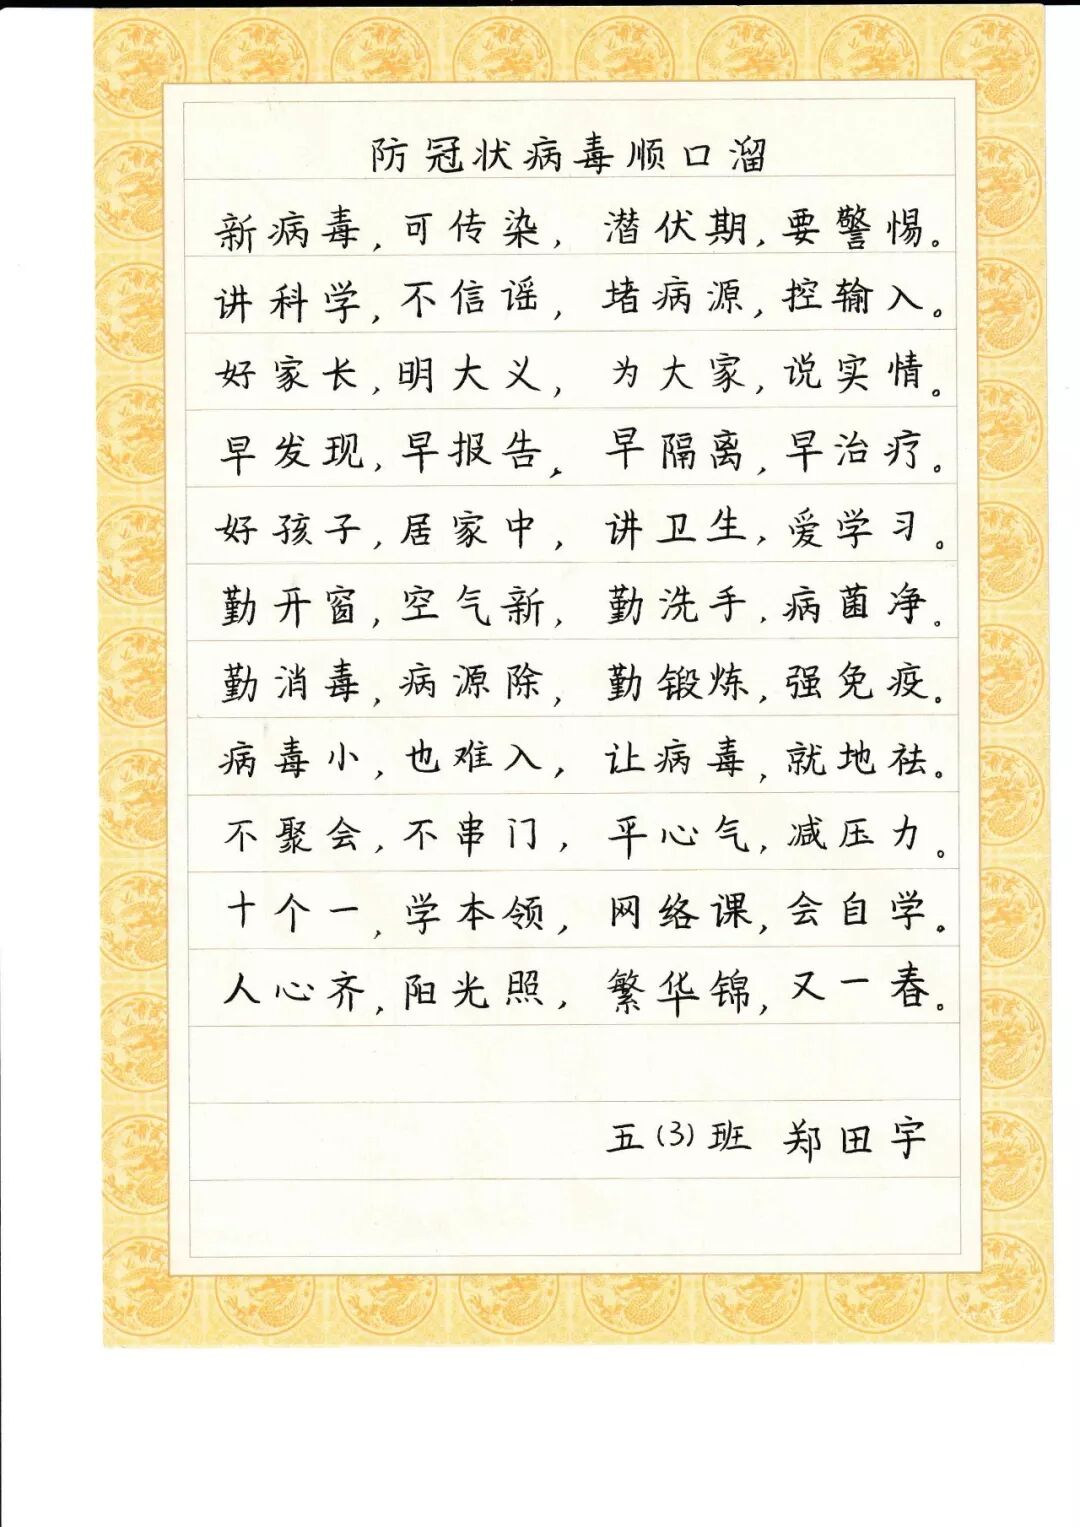 防冠状病毒顺口溜
新病毒,可传染,潜伏期,要警惕。
讲科学,不信谣,堵病源,控输入。
好家长,明大义,为大家,说实情。
早发现,早报告,早隔离,早治疗。
好孩子,居家中,讲卫生,爱学习。
勤开窗,空气新,勤洗手,病菌净。
勤消毒,病源除,勤锻炼,强免疫。
病毒小,也难入,让病毒,就地祛。
不聚会,不串门,平心气,减压力。
十个一,学本领,网络课,会自学。
人心齐,阳光照,繁华锦,又一春。
五(3)班 郑田宇